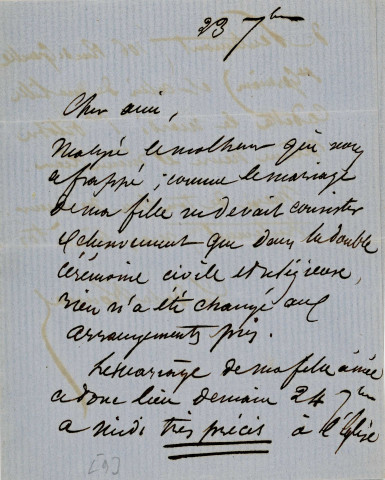 23 7bre
Cher ami,
Malgré le malheur qui nous
a frappé ; comme le mariage
de ma fille ne devait consister
que dans la double
cérémonie civile et religieuse,
rien n'a été changé aux
arrangements pris.
Le mariage de ma fille aînée
a donc lieu demain 24 7bre
a midi très précis à l'Eglise
[9]